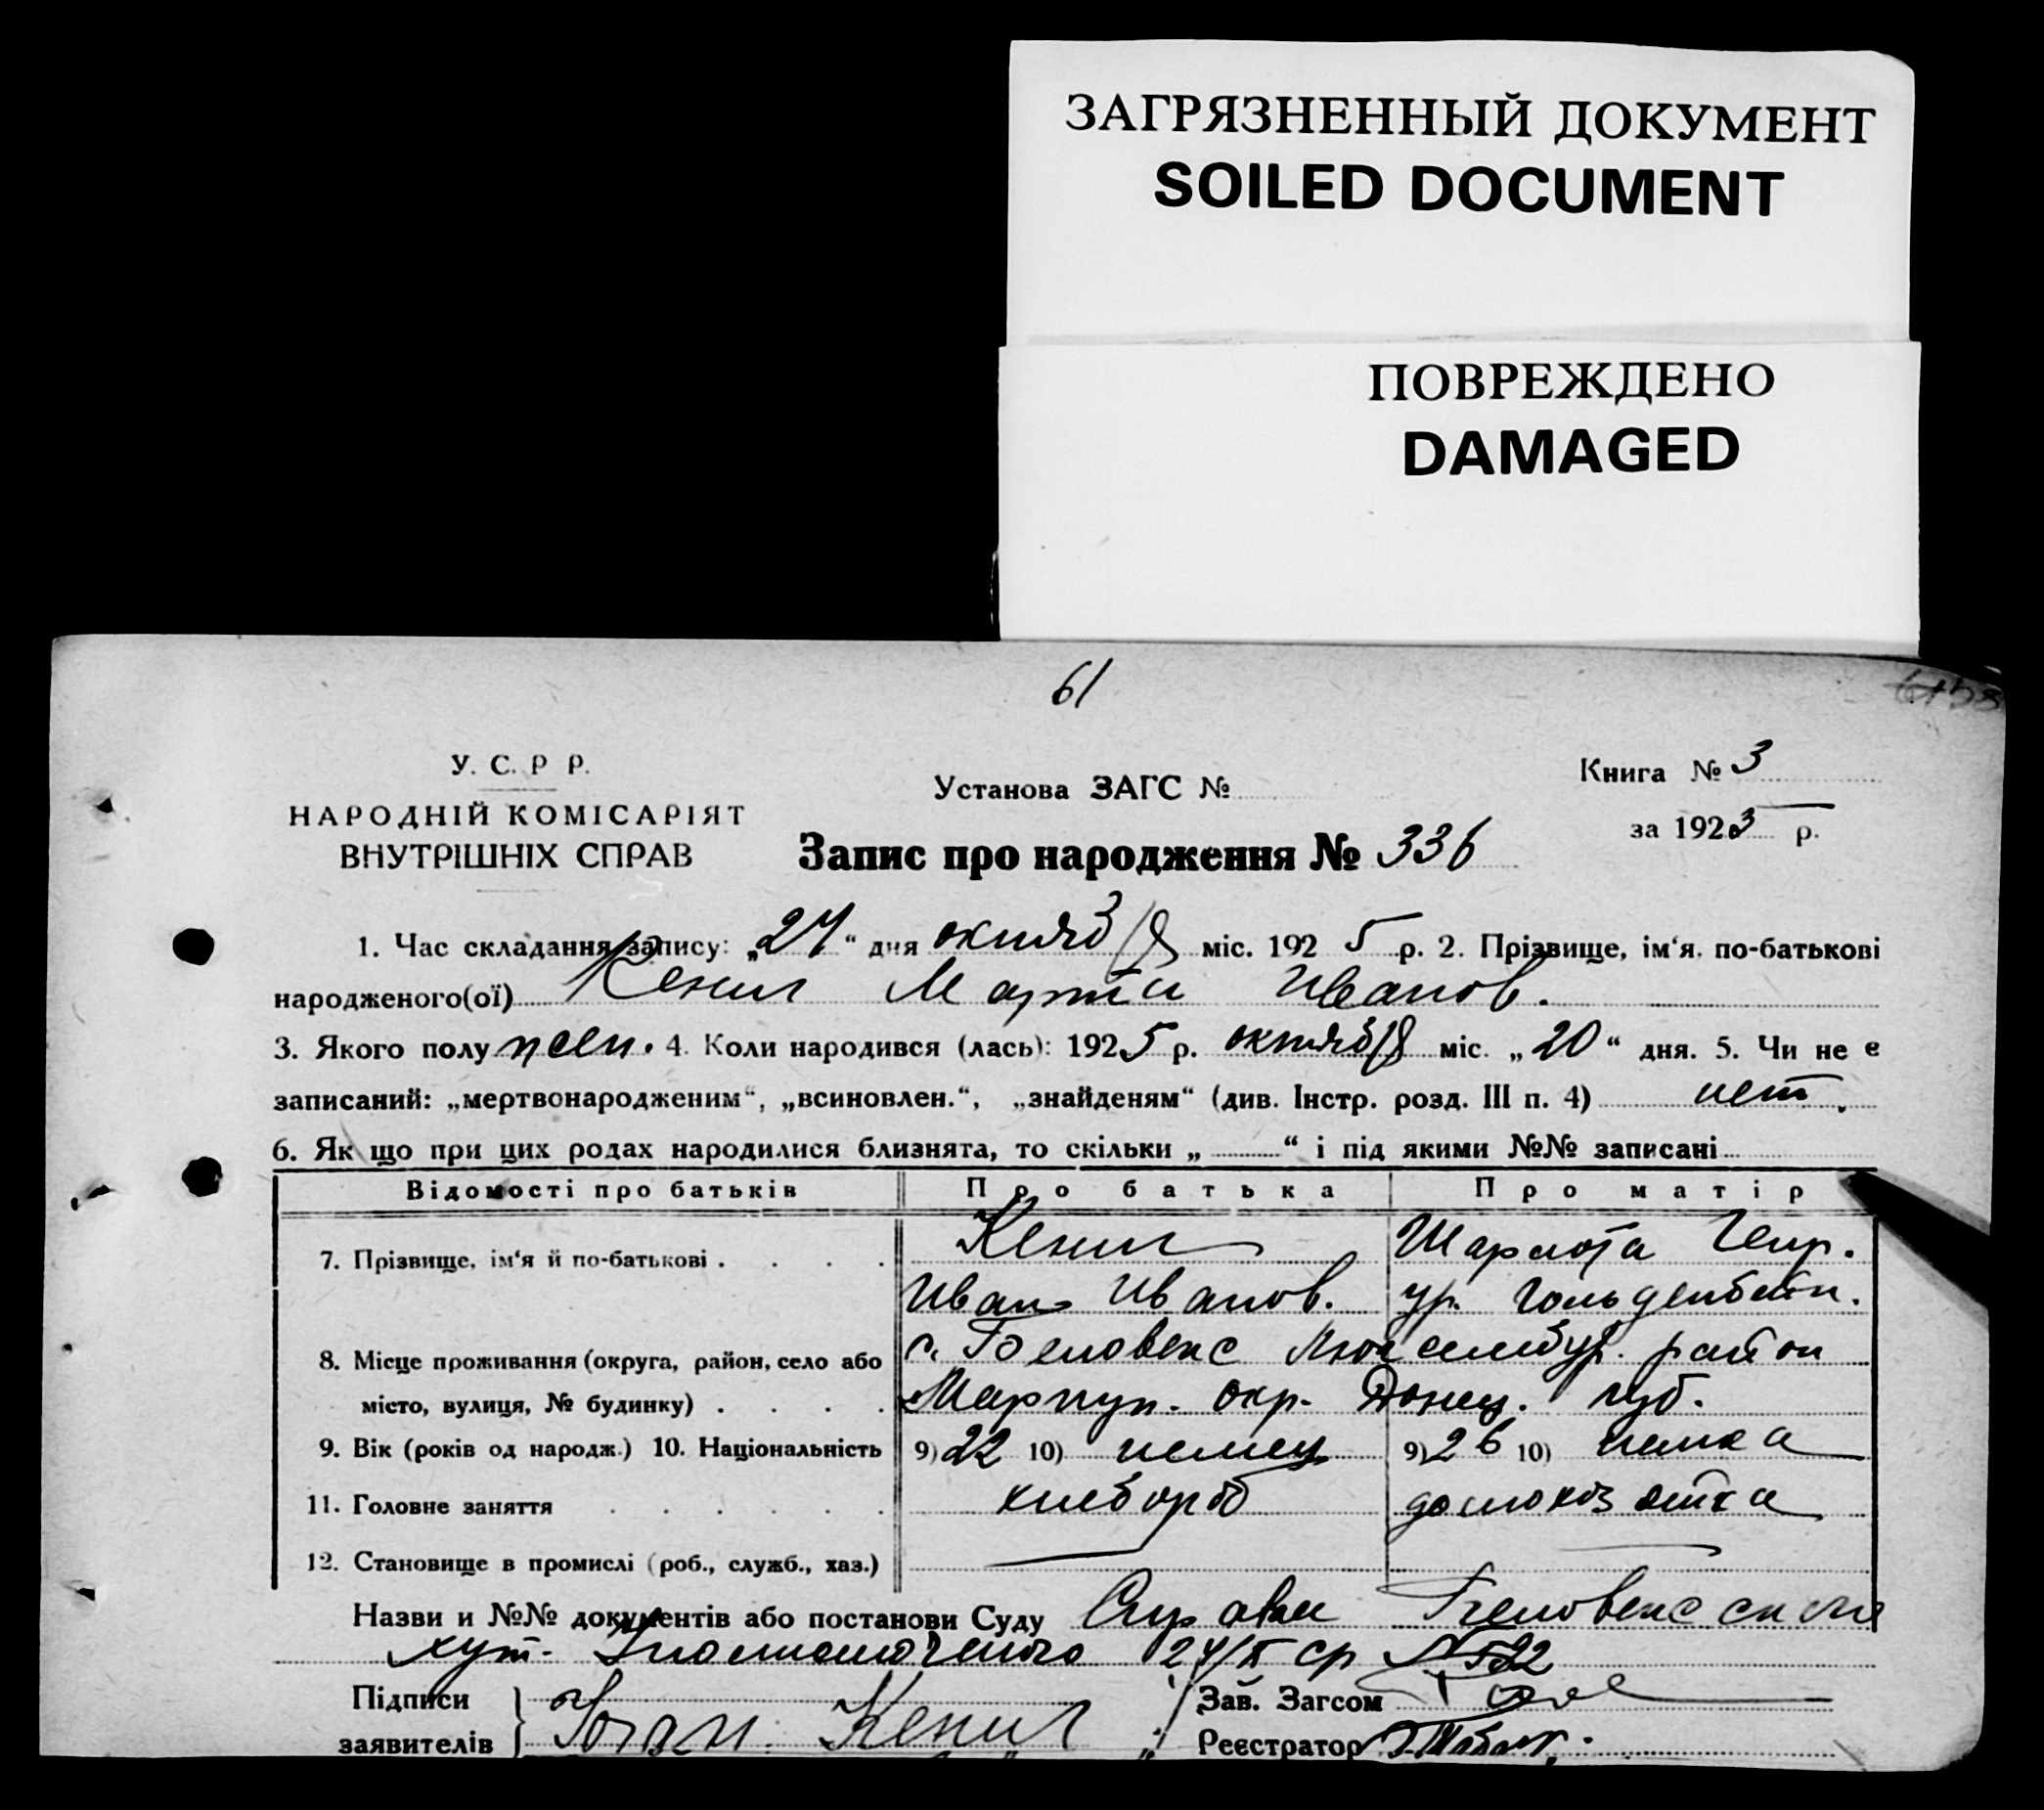 ЗАГРЯЗНЕННЫЙ ДОКУМЕНТ
SOILED DOCUMENT
ПОВРЕЖДЕНО
DAMAGED
61
У. С. Р Р.
НАРОДНІЙ КОМІСАРІЯТ
ВНУТРІШНІХ СПРАВ
Установа ЗАГС №
Запис про народження № 336
Книга № 3
за 1923 р.
1. Час складання запису: „27“ дня октября міс. 1925 р. 2. Прізвище, ім‘я, по-батькові
народженого(ої) Кениг Марта Иванов.
3. Якого полу жен. 4. Коли народився (лась): 1925 р. октября міс. „20“ дня. 5. Чи не є
записаний: „мертвонародженим“, „всиновлен.“, „знайденям“ (див. Інстр. розд. III п. 4) нет.
6. Як що при цих родах народилися близнята, то скільки „ “ і під якими №№ записані
Відомості про батьків Про батька Про матір
7. Прізвище, ім‘я й по-батькові . . . . Кениг Шарлота Генр.
Иван Иванов. ур. Гольденбейн.
8. Місце проживання (округа, район, село або с. Беловенс Люксембур. район
місто, вулиця, № будинку) . . . . Мариуп. окр. Донец. губ.
9. Вік (років од народж.) 10. Національність 9) 22 10) немец 9) 26 10) немка
11. Головне заняття . . . . . . хлебороб домохозяйка
12. Становище в промислі (роб., служб., хаз.)
Назви и №№ документів або постанови Суду Справка Беловенс
хут. Уполномоченого 24/X ср №
Підписи
заявителів Кениг
Зав. Загсом
Реєстратор